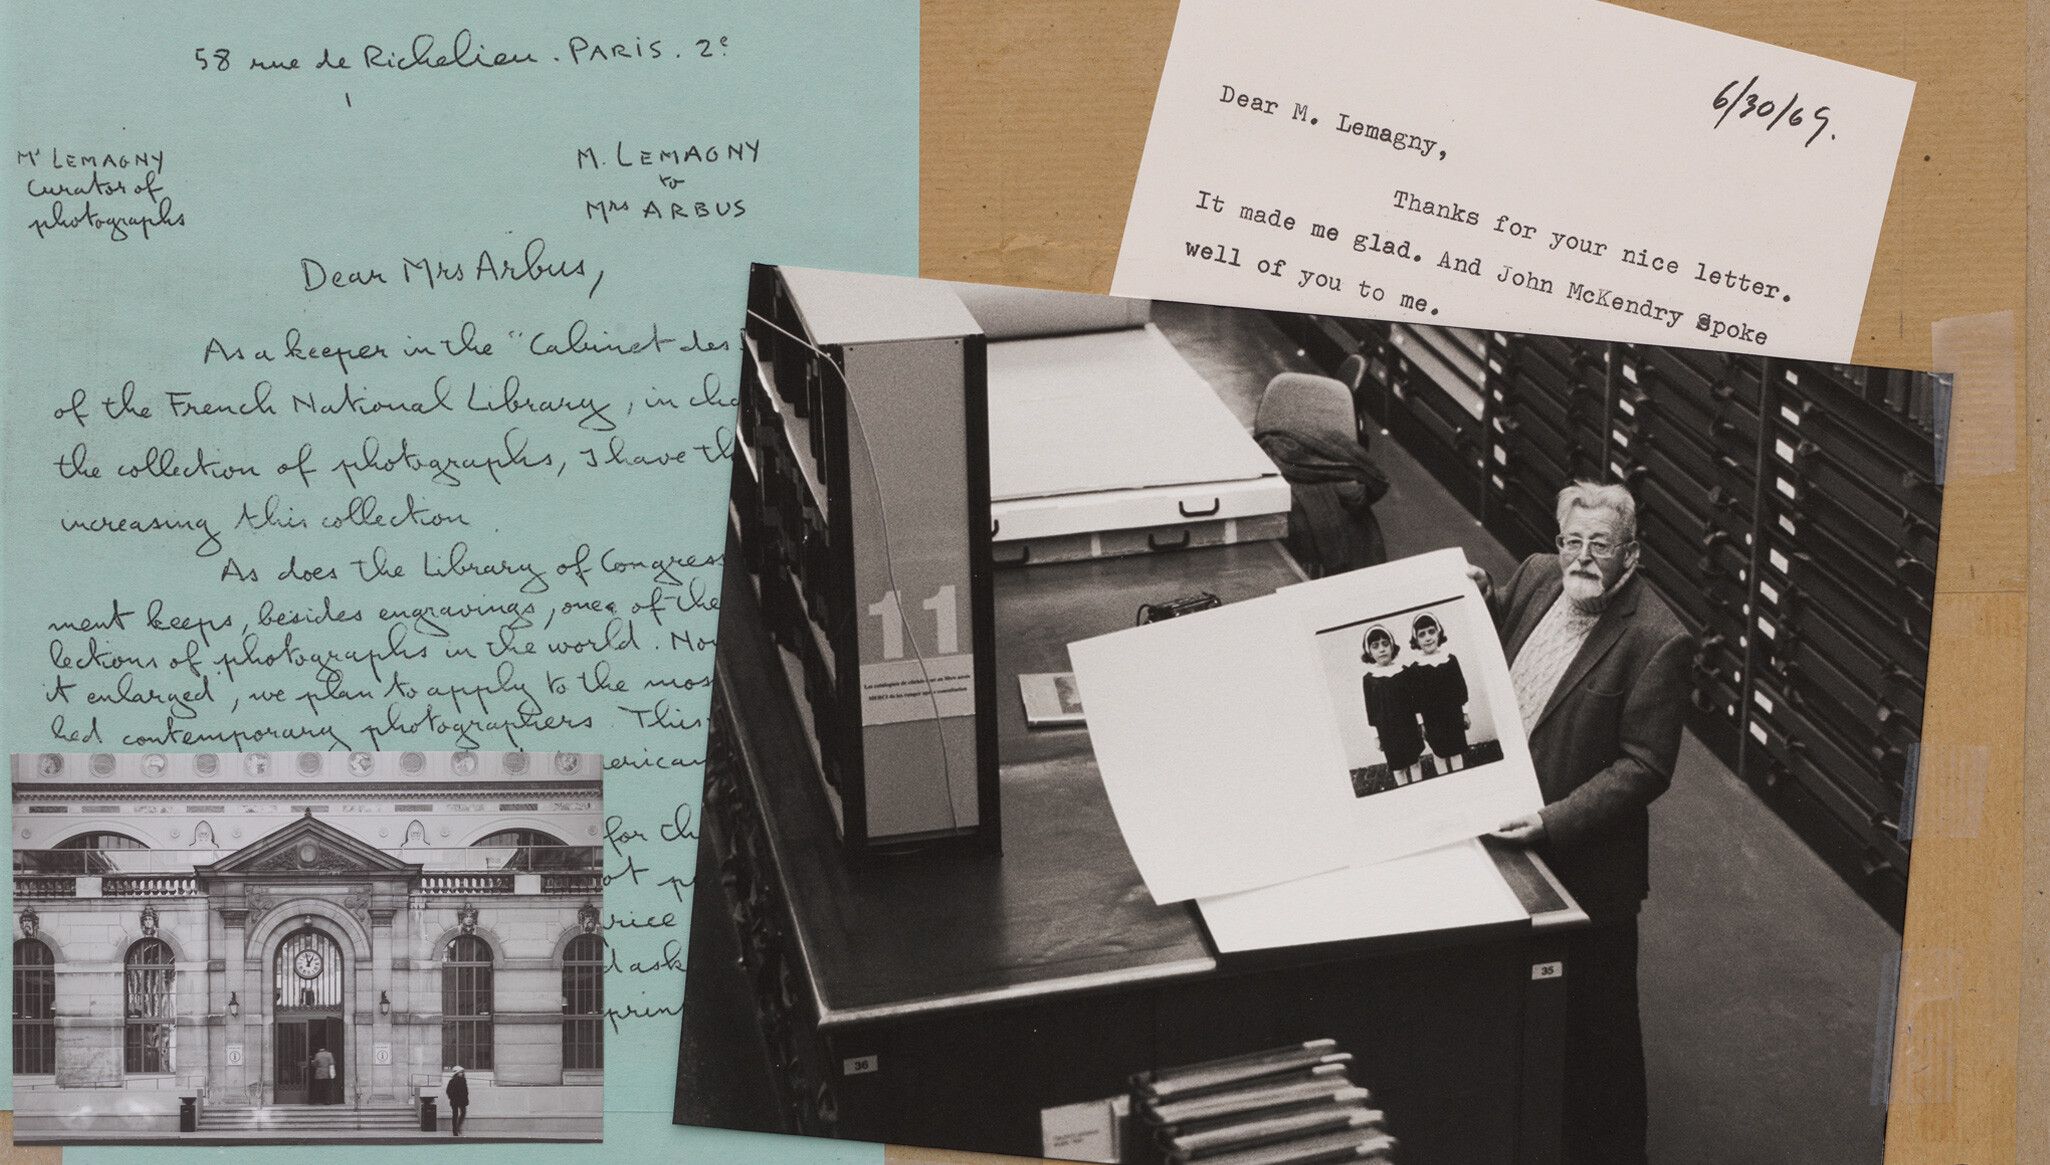 58 rue de Richelieu. PARIS. 2e
Mr LEMAGNY
Curator of
photographs
M. LEMAGNY
to
Mrs ARBUS
Dear Mrs Arbus,
As a keeper in the "Cabinet des
of the French National Library, in cha
the collection of photographs, I have th
increasing this collection.
As does the Library of Congress
ment keeps, besides engravings, one of the
lections of photographs in the world. Now
it enlarged, we plan to apply to the mos
hed contemporary photographers. This
erican
for th
ot p
rice
d ask
print
6/30/69.
Dear M. Lemagny,
Thanks for your nice letter.
It made me glad. And John McKendry spoke
well of you to me.
11
MERCI de les ranger après consultation
35
36